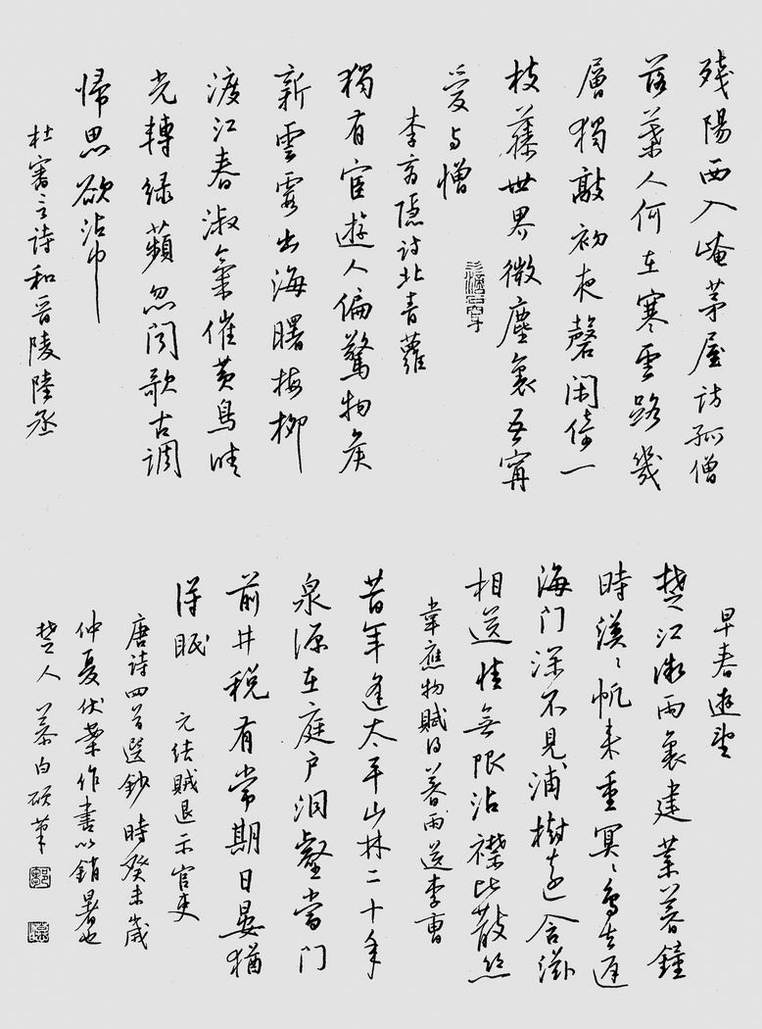 殘陽西入崦茅屋訪孤僧
落葉人何在寒雲路幾
層獨敲初夜磬閑倚一
枝藤世界微塵裏吾寧
愛与憎
李商隱詩北青蘿
獨有宦遊人偏驚物候
新雲霞出海曙梅柳
渡江春淑氣催黃鳥晴
光轉緑蘋忽闻歌古調
歸思欲沾巾
杜審言詩和晉陵陸丞
早春遊望
楚江微雨裏建業暮鐘
時漠〻帆來重冥〻鳥去遲
海门深不見浦樹遠含滋
相送情無限沾襟比散絲
韋應物賦得暮雨送李曹
昔年逢太平山林二十年
泉源在庭戶洞壑當门
前井稅有常期日晏猶
得眠 元結賊退示官吏
唐詩四首選鈔 時癸未歲
仲夏伏案作書以銷暑也
楚人慕白硕筆